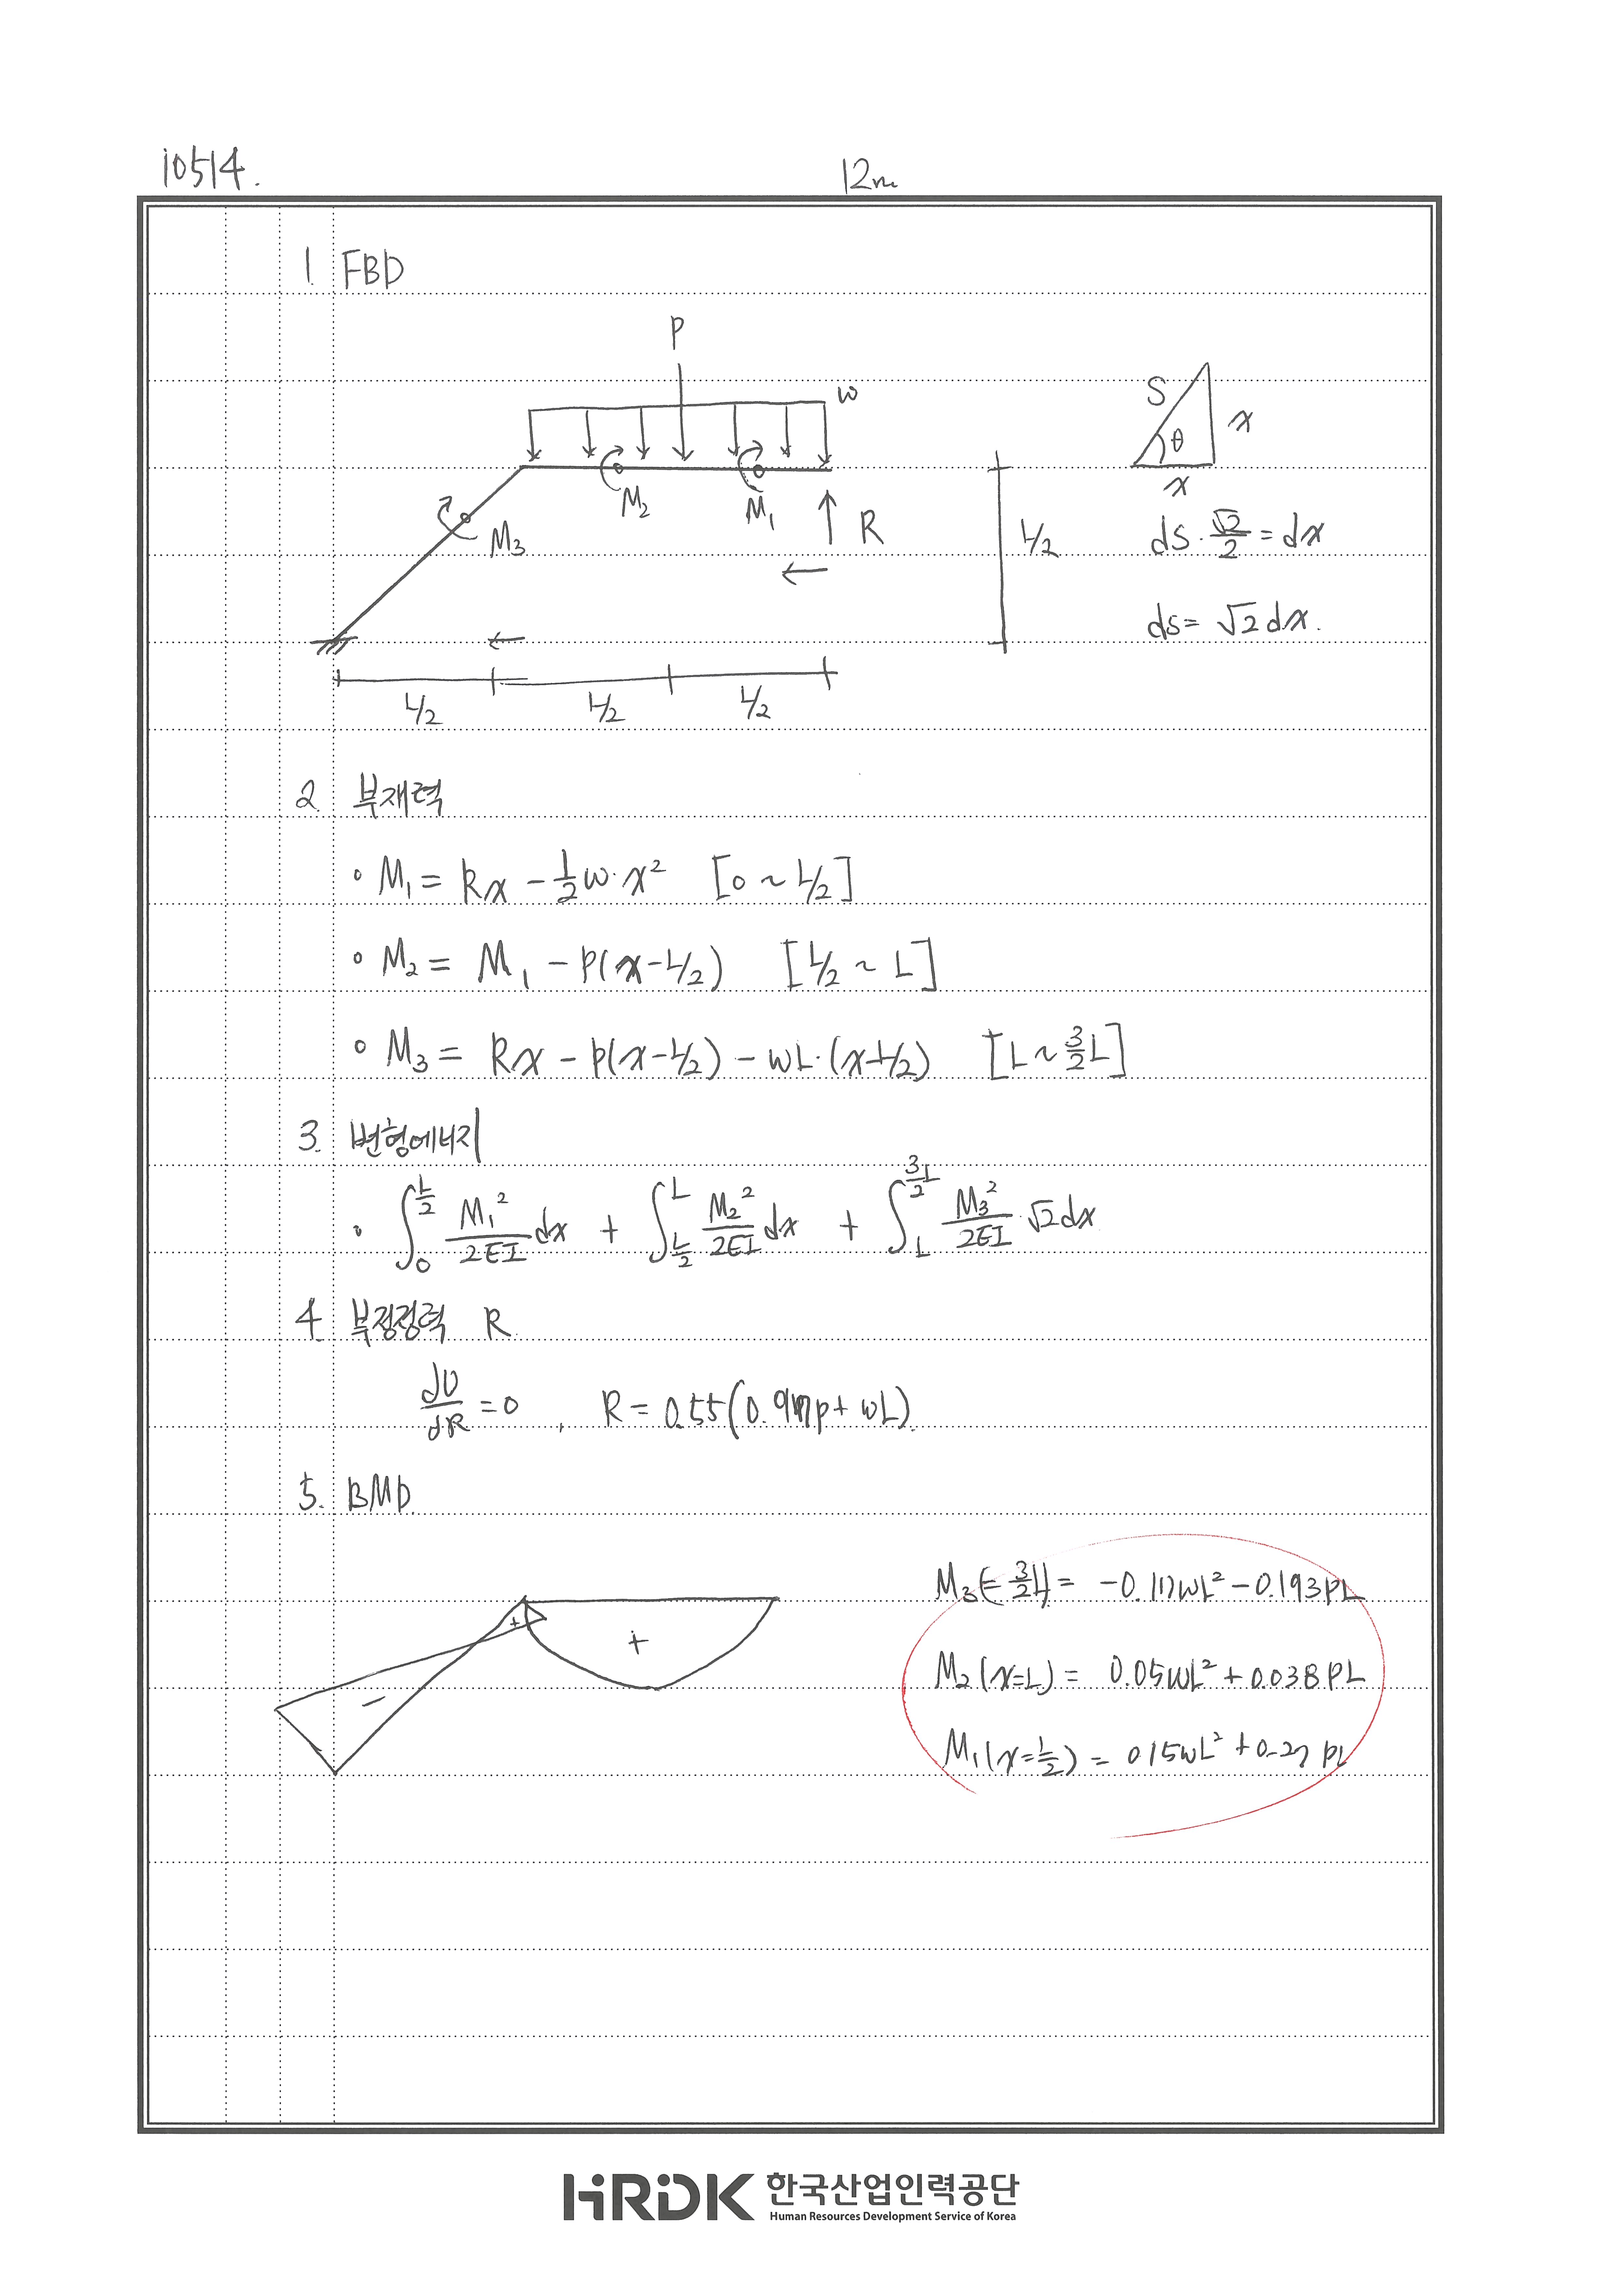 10514.
12m
1. FBD
P
w
M₂
M₁
M₃
R
L/2
L/2
L/2
L/2
S
θ
x
x
ds·√2/2 = dx
ds = √2 dx.
2. 부재력
∘ M₁ = Rx - 1/2 w·x² [0 ~ L/2]
∘ M₂ = M₁ - P(x-L/2) [L/2 ~ L]
∘ M₃ = Rx - P(x-L/2) - wL·(x-L/2) [L ~ 3/2 L]
3. 변형에너지
∘ ∫₀^(L/2) M₁²/2EI dx + ∫_(L/2)^L M₂²/2EI dx + ∫_L^(3/2 L) M₃²/2EI ·√2 dx
4. 부정정력 R
dU/dR = 0 , R = 0.55( P + wL).
5. BMD
+
+
-
M₃(= 3/2 L) = -0.117wL² - 0.193PL
M₂(x=L) = 0.05wL² + 0.038PL
M₁(x=L/2) = 0.15wL² + 0.27PL
HRDK 한국산업인력공단
Human Resources Development Service of Korea